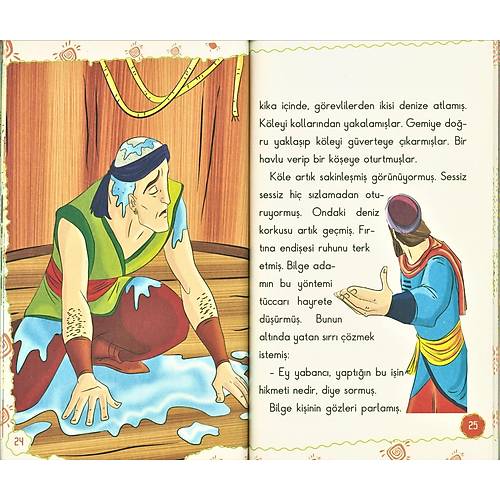 kika içinde, görevlilerden ikisi denize atlamış.
Köleyi kollarından yakalamışlar. Gemiye doğ-
ru yaklaşıp köleyi güverteye çıkarmışlar. Bir
havlu verip bir köşeye oturtmuşlar.
Köle artık sakinleşmiş görünüyormuş. Sessiz
sessiz hiç sızlamadan otu-
ruyormuş. Ondaki deniz
korkusu artık geçmiş. Fır-
tına endişesi ruhunu terk
etmiş. Bilge ada-
mın bu yöntemi
tüccarı hayrete
düşürmüş. Bunun
altında yatan sırrı çözmek
istemiş:
- Ey yabancı, yaptığın bu işin
hikmeti nedir, diye sormuş.
Bilge kişinin gözleri parlamış.
24
25